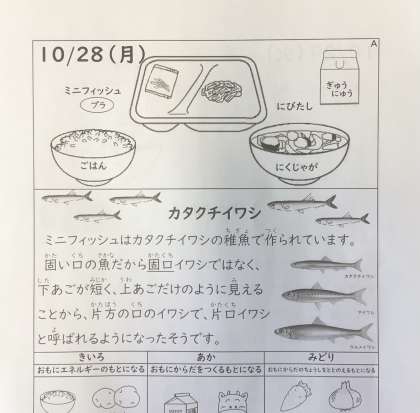 A
10/28(月)
ミニフィッシュ
プラ
にびたし
ぎゅう
にゅう
ごはん
にくじゃが
カタクチイワシ
ミニフィッシュはカタクチイワシの稚魚で作られています。
固い口の魚だから固口イワシではなく、
下あごが短く、上あごだけのように見える
ことから、片方の口のイワシで、片口イワシ
と呼ばれるようになったそうです。
カタクチイワシ
マイワシ
ウルメイワシ
きいろ
あか
みどり
おもにエネルギーのもとになる
おもにからだをつくるもとになる
おもにからだのちょうしをととのえるもとになる